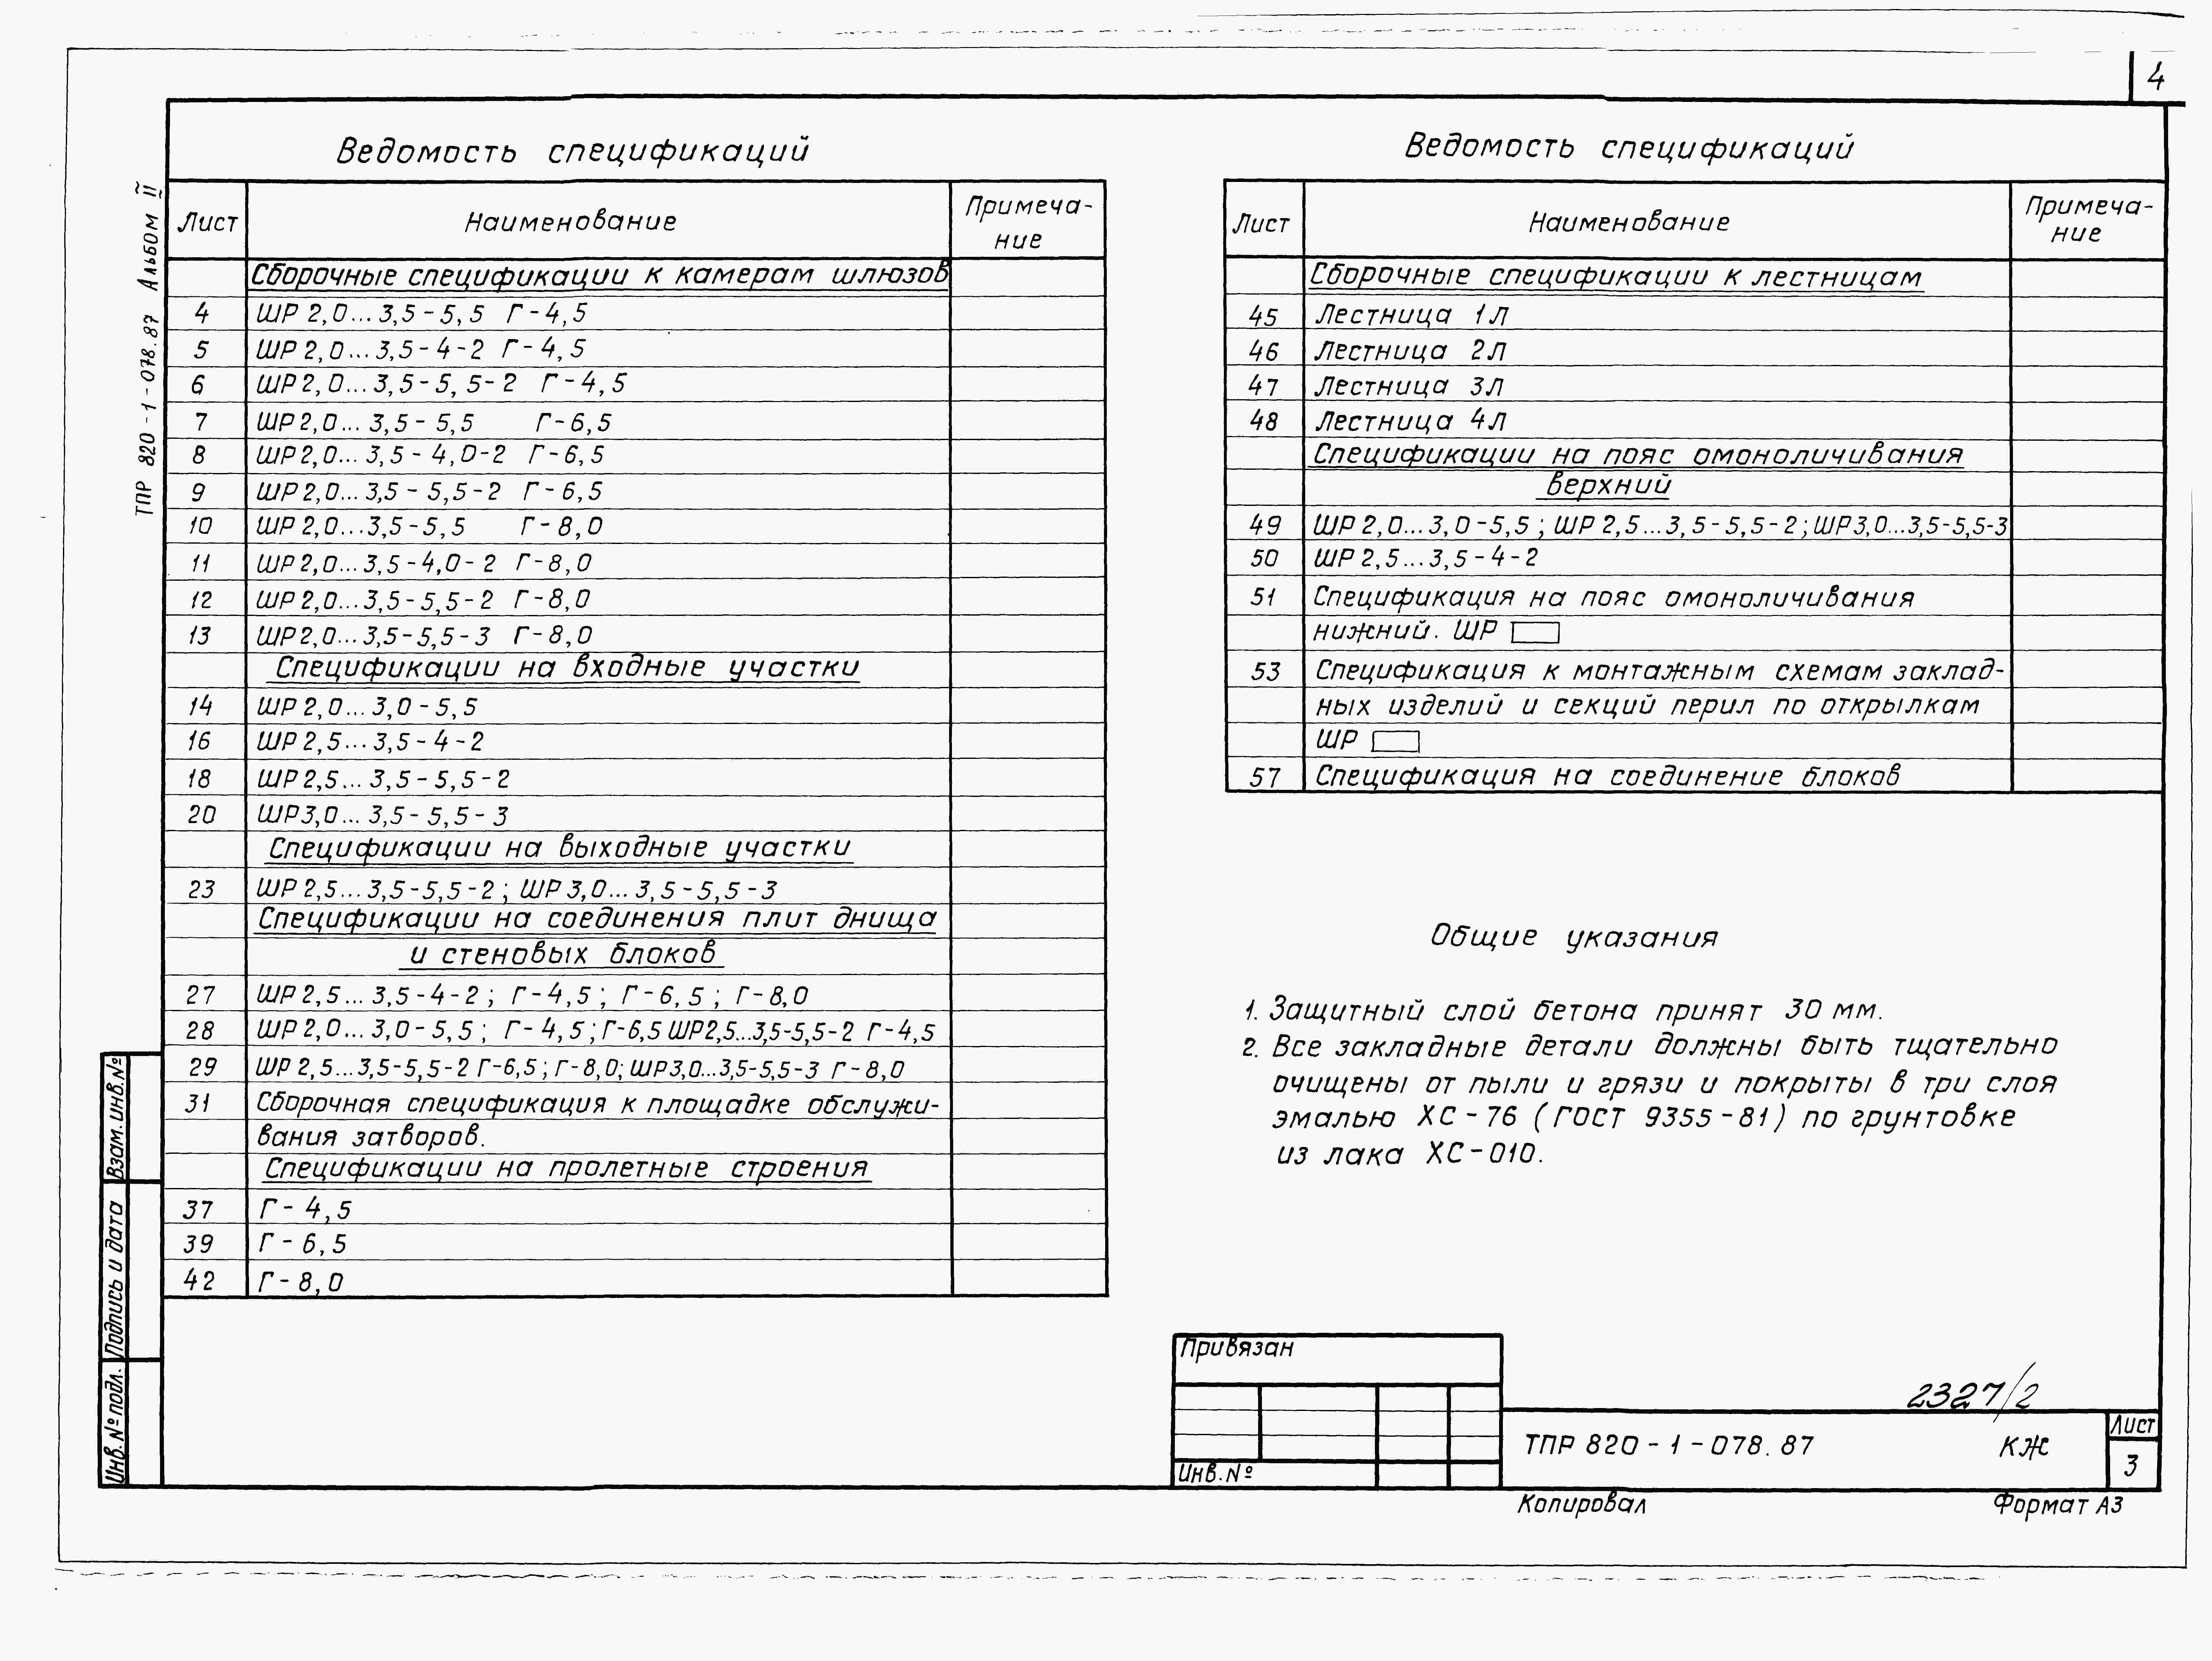 4
ТПР 820-1-078.87 Альбом II
Ведомость спецификаций
Лист Наименование Примеча-
ние
Сборочные спецификации к камерам шлюзов
4 ШР 2,0...3,5-5,5 Г-4,5
5 ШР 2,0...3,5-4-2 Г-4,5
6 ШР 2,0...3,5-5,5-2 Г-4,5
7 ШР 2,0...3,5-5,5 Г-6,5
8 ШР 2,0...3,5-4,0-2 Г-6,5
9 ШР 2,0...3,5-5,5-2 Г-6,5
10 ШР 2,0...3,5-5,5 Г-8,0
11 ШР 2,0...3,5-4,0-2 Г-8,0
12 ШР 2,0...3,5-5,5-2 Г-8,0
13 ШР 2,0...3,5-5,5-3 Г-8,0
Спецификации на входные участки
14 ШР 2,0...3,0-5,5
16 ШР 2,5...3,5-4-2
18 ШР 2,5...3,5-5,5-2
20 ШР 3,0...3,5-5,5-3
Спецификации на выходные участки
23 ШР 2,5...3,5-5,5-2; ШР 3,0...3,5-5,5-3
Спецификации на соединения плит днища
и стеновых блоков
27 ШР 2,5...3,5-4-2; Г-4,5; Г-6,5; Г-8,0
28 ШР 2,0...3,0-5,5; Г-4,5; Г-6,5 ШР 2,5...3,5-5,5-2 Г-4,5
29 ШР 2,5...3,5-5,5-2 Г-6,5; Г-8,0; ШР 3,0...3,5-5,5-3 Г-8,0
31 Сборочная спецификация к площадке обслужи-
вания затворов.
Спецификации на пролетные строения
37 Г-4,5
39 Г-6,5
42 Г-8,0
Ведомость спецификаций
Лист Наименование Примеча-
ние
Сборочные спецификации к лестницам
45 Лестница 1Л
46 Лестница 2Л
47 Лестница 3Л
48 Лестница 4Л
Спецификации на пояс омоноличивания
верхний
49 ШР 2,0...3,0-5,5; ШР 2,5...3,5-5,5-2; ШР 3,0...3,5-5,5-3
50 ШР 2,5...3,5-4-2
51 Спецификация на пояс омоноличивания
нижний. ШР
53 Спецификация к монтажным схемам заклад-
ных изделий и секций перил по открылкам
ШР
57 Спецификация на соединение блоков
Общие указания
1. Защитный слой бетона принят 30 мм.
2. Все закладные детали должны быть тщательно
очищены от пыли и грязи и покрыты в три слоя
эмалью ХС-76 (ГОСТ 9355-81) по грунтовке
из лака ХС-010.
Взам. инв. №
Подпись и дата
Инв. № подл.
Привязан
Инв. №
2327/2
ТПР 820-1-078.87 КЖ
Лист
3
Копировал Формат А3